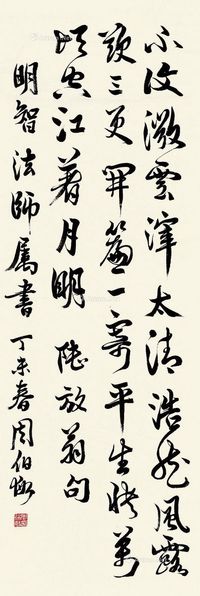 不復微雲滓太清浩然風露
欲三更開簾一寄平生快萬
頃空江著月明 陸放翁句
明智法師屬書 丁未春周伯敏